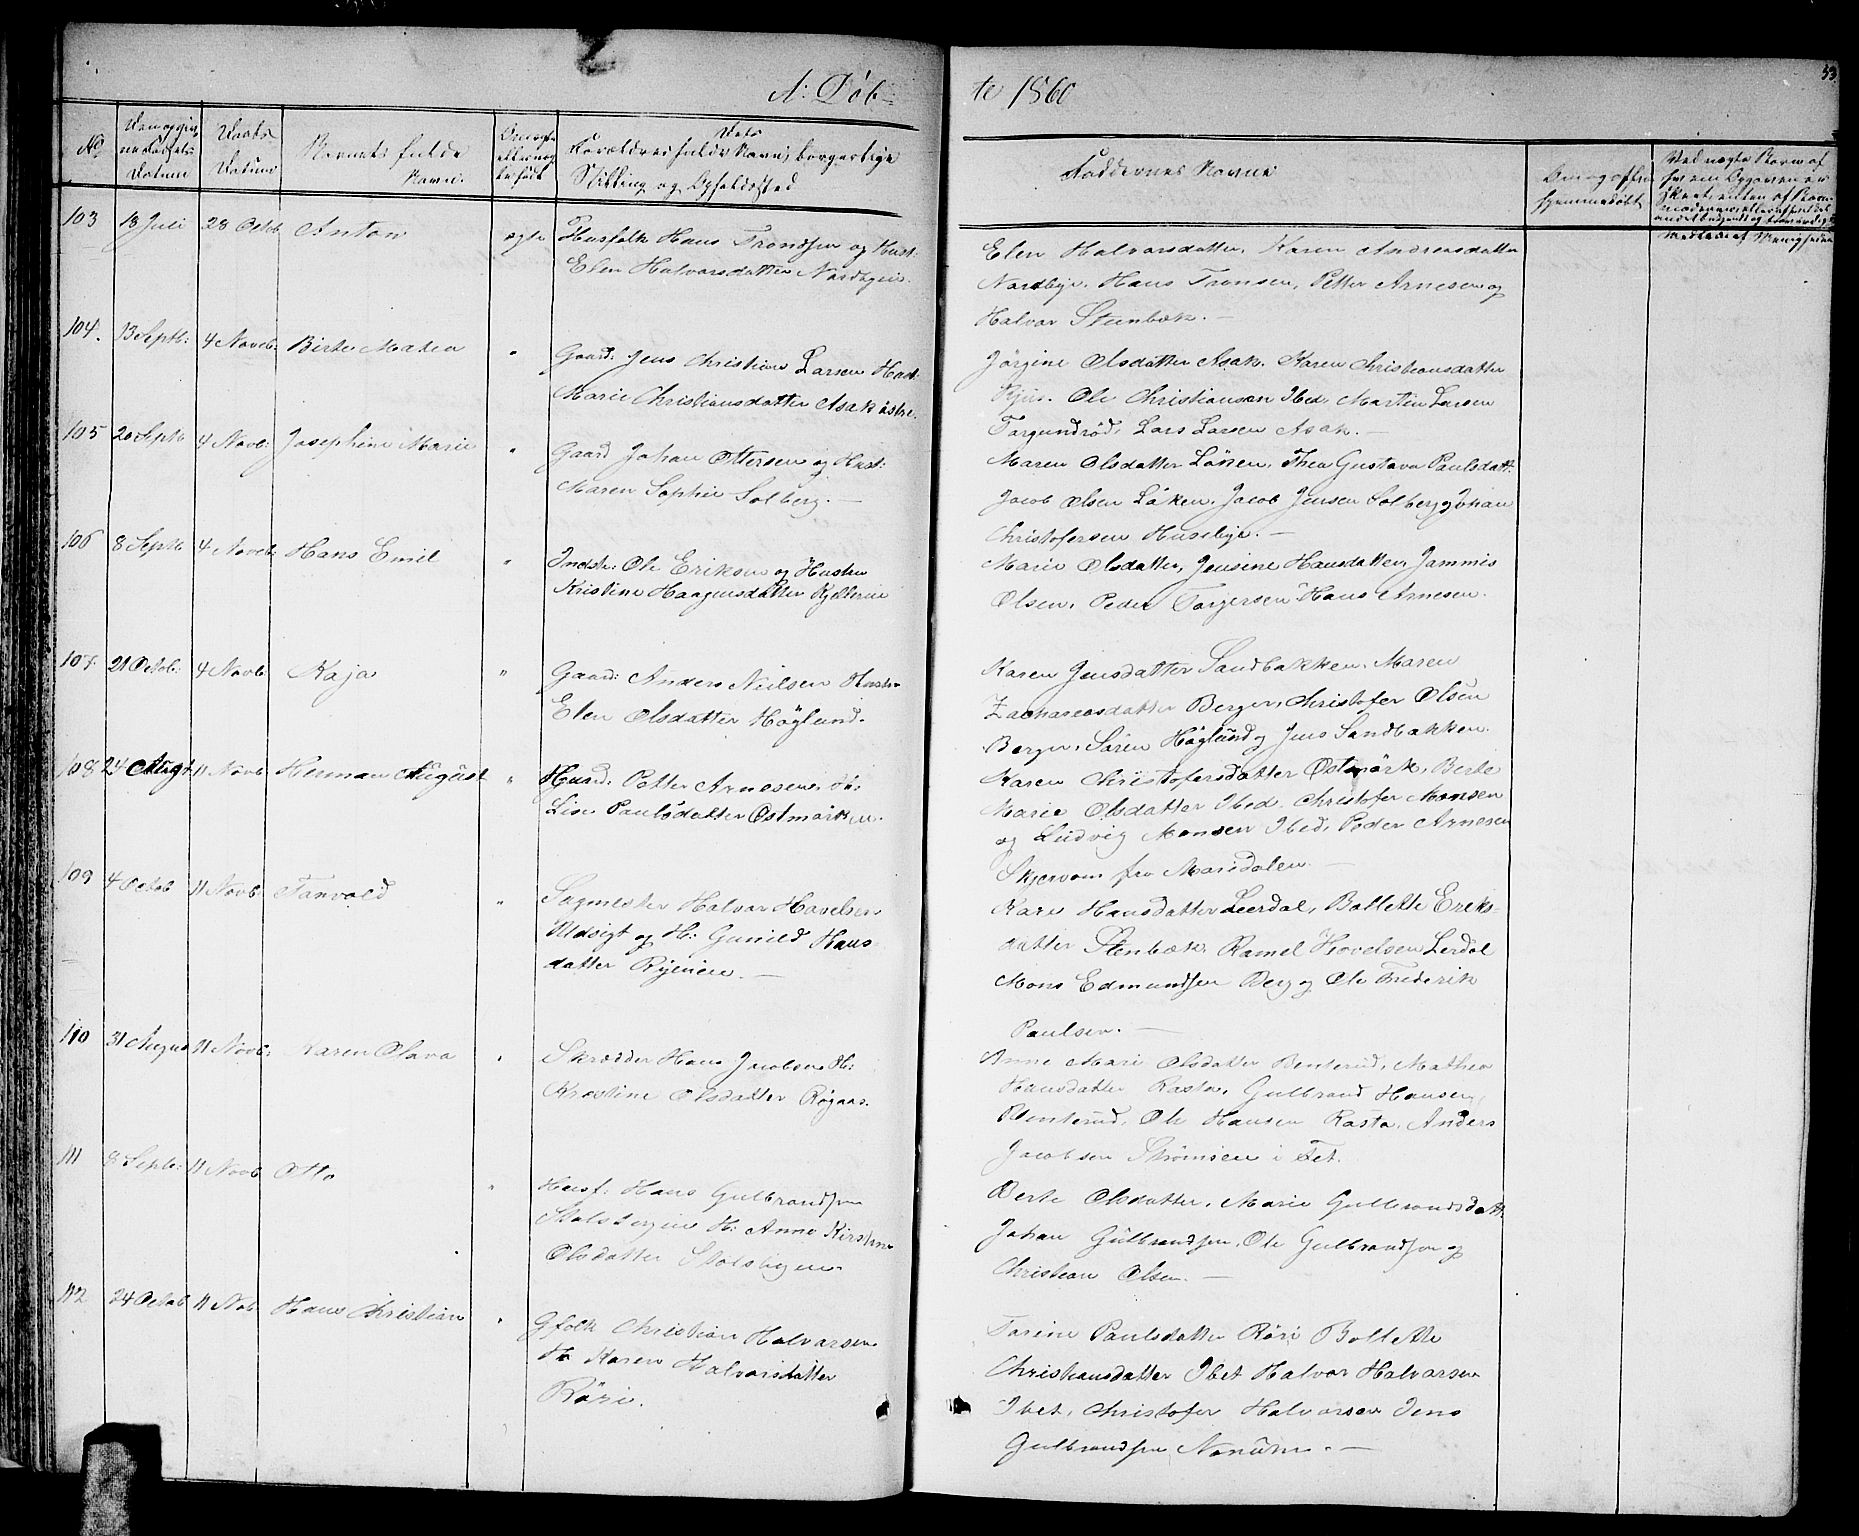 A: Døb-
te 1860
53
No
Datum
Daabs
Datum
Barnets fulde
Navn.
Forældres fulde Navn, borgerlige
Stilling og Opholdssted
Faddernes Navne
103 13 Juli 28 Octb Anton ægte Husfolk Hans Trondsen og Hust:
Elen Halvorsdatter Nordbyeie.
Elen Halvorsdatter, Karen Andreasdatter
Nordbye, Hans Tronsen, Petter Arnesen og
Halvor Steenbæk. —
104. 13 Septb: 4 Noveb: Birte Matea " Gaard: Jens Christian Larsen Hust:
Marie Christiansdatter Asak østre.
Jørgine Olsdatter Asak. Karen Christiansdatter
Ole Christiansen Ibed. Martin Larsen
Targundrød, Lars Larsen Asak. —
105 20 Septb 4 Novb: Josephine Marie " Gaard Johan Ottersen og Hust:
Maren Sophie Solberg. —
Maren Olsdatter Løken, Thea Gustava Paulsdatt:
Jacob Olsen Løken, Jacob Jensen Solberg og Johan
Christofersen Huseby. —
106 8 Septb 4 Noveb: Hans Emil " Indst: Ole Eriksen og Hustru
Kristine Haagensdatter Kjellereie
Marie Olsdatter, Jensine Hansdatter, Jammis
Olsen, Peder Torgersen Hans Arnesen.
107. 21 Octob: 4 Novb. Kaja " Gaard: Anders Nielsen Hustr:
Elen Olsdatter Høglund.
Karen Jensdatter Sandbakken, Maren
Zachariasdatter Berger, Christofer Olsen
Berger, Søren Høglund og Jens Sandbakken.
108 24 Augt 11 Novb Herman August " Husd: Petter Arnesen H:
Lise Paulsdatter Østmørken.
Karen Christofersdatter Østmørk, Berte
Marie Olsdatter Ibed. Christofer Monsen
og Ludvig Monsen Ibed, Peder Arnesen
Skjervom fra Maridalen. —
109 4 Octob 11 Novb Tarvald " Sagmester Halvor Havelsen
Udsigt og H: Gunild Hans-
datter Ryeneie. —
Kari Hansdatter Leerdal, Bollette Eriks-
datter Stenbæk, Ramel Hovelsen Lerdal
Mons Edmundsen Berg og Ole Frederik
Paulsen. —
110 31 August 11 Novb: Karen Olava " Skrædder Hans Jacobsen H:
Kristine Olsdatter Røgaas.
Anne Mari Olsdatter Benterud, Mathea
Hansdatter Rasta, Gulbrand Hansen
Benterud, Ole Hansen Rasta, Anders
Jacobsen Strømsen i Fet.
111 8 Septb: 11 Novb Otto " Husf: Hans Gulbrandsen
H: Anne Kirstine
Olsdatter
Berte Olsdatter, Marie Gulbrandsdatt.
Johan Gulbrandsen, Ole Gulbrandsen og
Christian Olsen. —
112 24 Octob 11 Nob: Hans Christian " Gfolk Christian Halvorsen
H: Karen Halvorsdatter
Røri.
Torine Paulsdatter Røri Bollette
Christiansdatter Ibet Halvor Halvorsen
Ibet, Christofer Halvorsen Jens
Gulbrandsen —